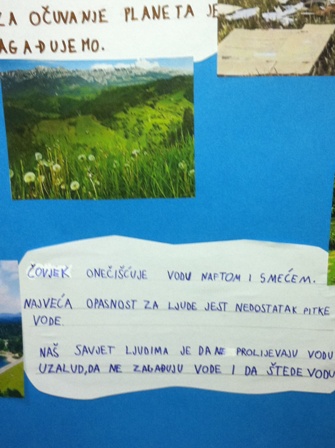 ZA OČUVANJE PLANETA JE
AGAĐUJEMO.
ČOVJEK ONEČIŠĆUJE VODU NAFTOM I SMEĆEM.
NAJVEĆA OPASNOST ZA LJUDE JEST NEDOSTATAK PITKE
VODE.
NAŠ SAVJET LJUDIMA JE DA NE PROLIJEVAJU VODU
UZALUD, DA NE ZAGAĐUJU VODE I DA ŠTEDE VODU